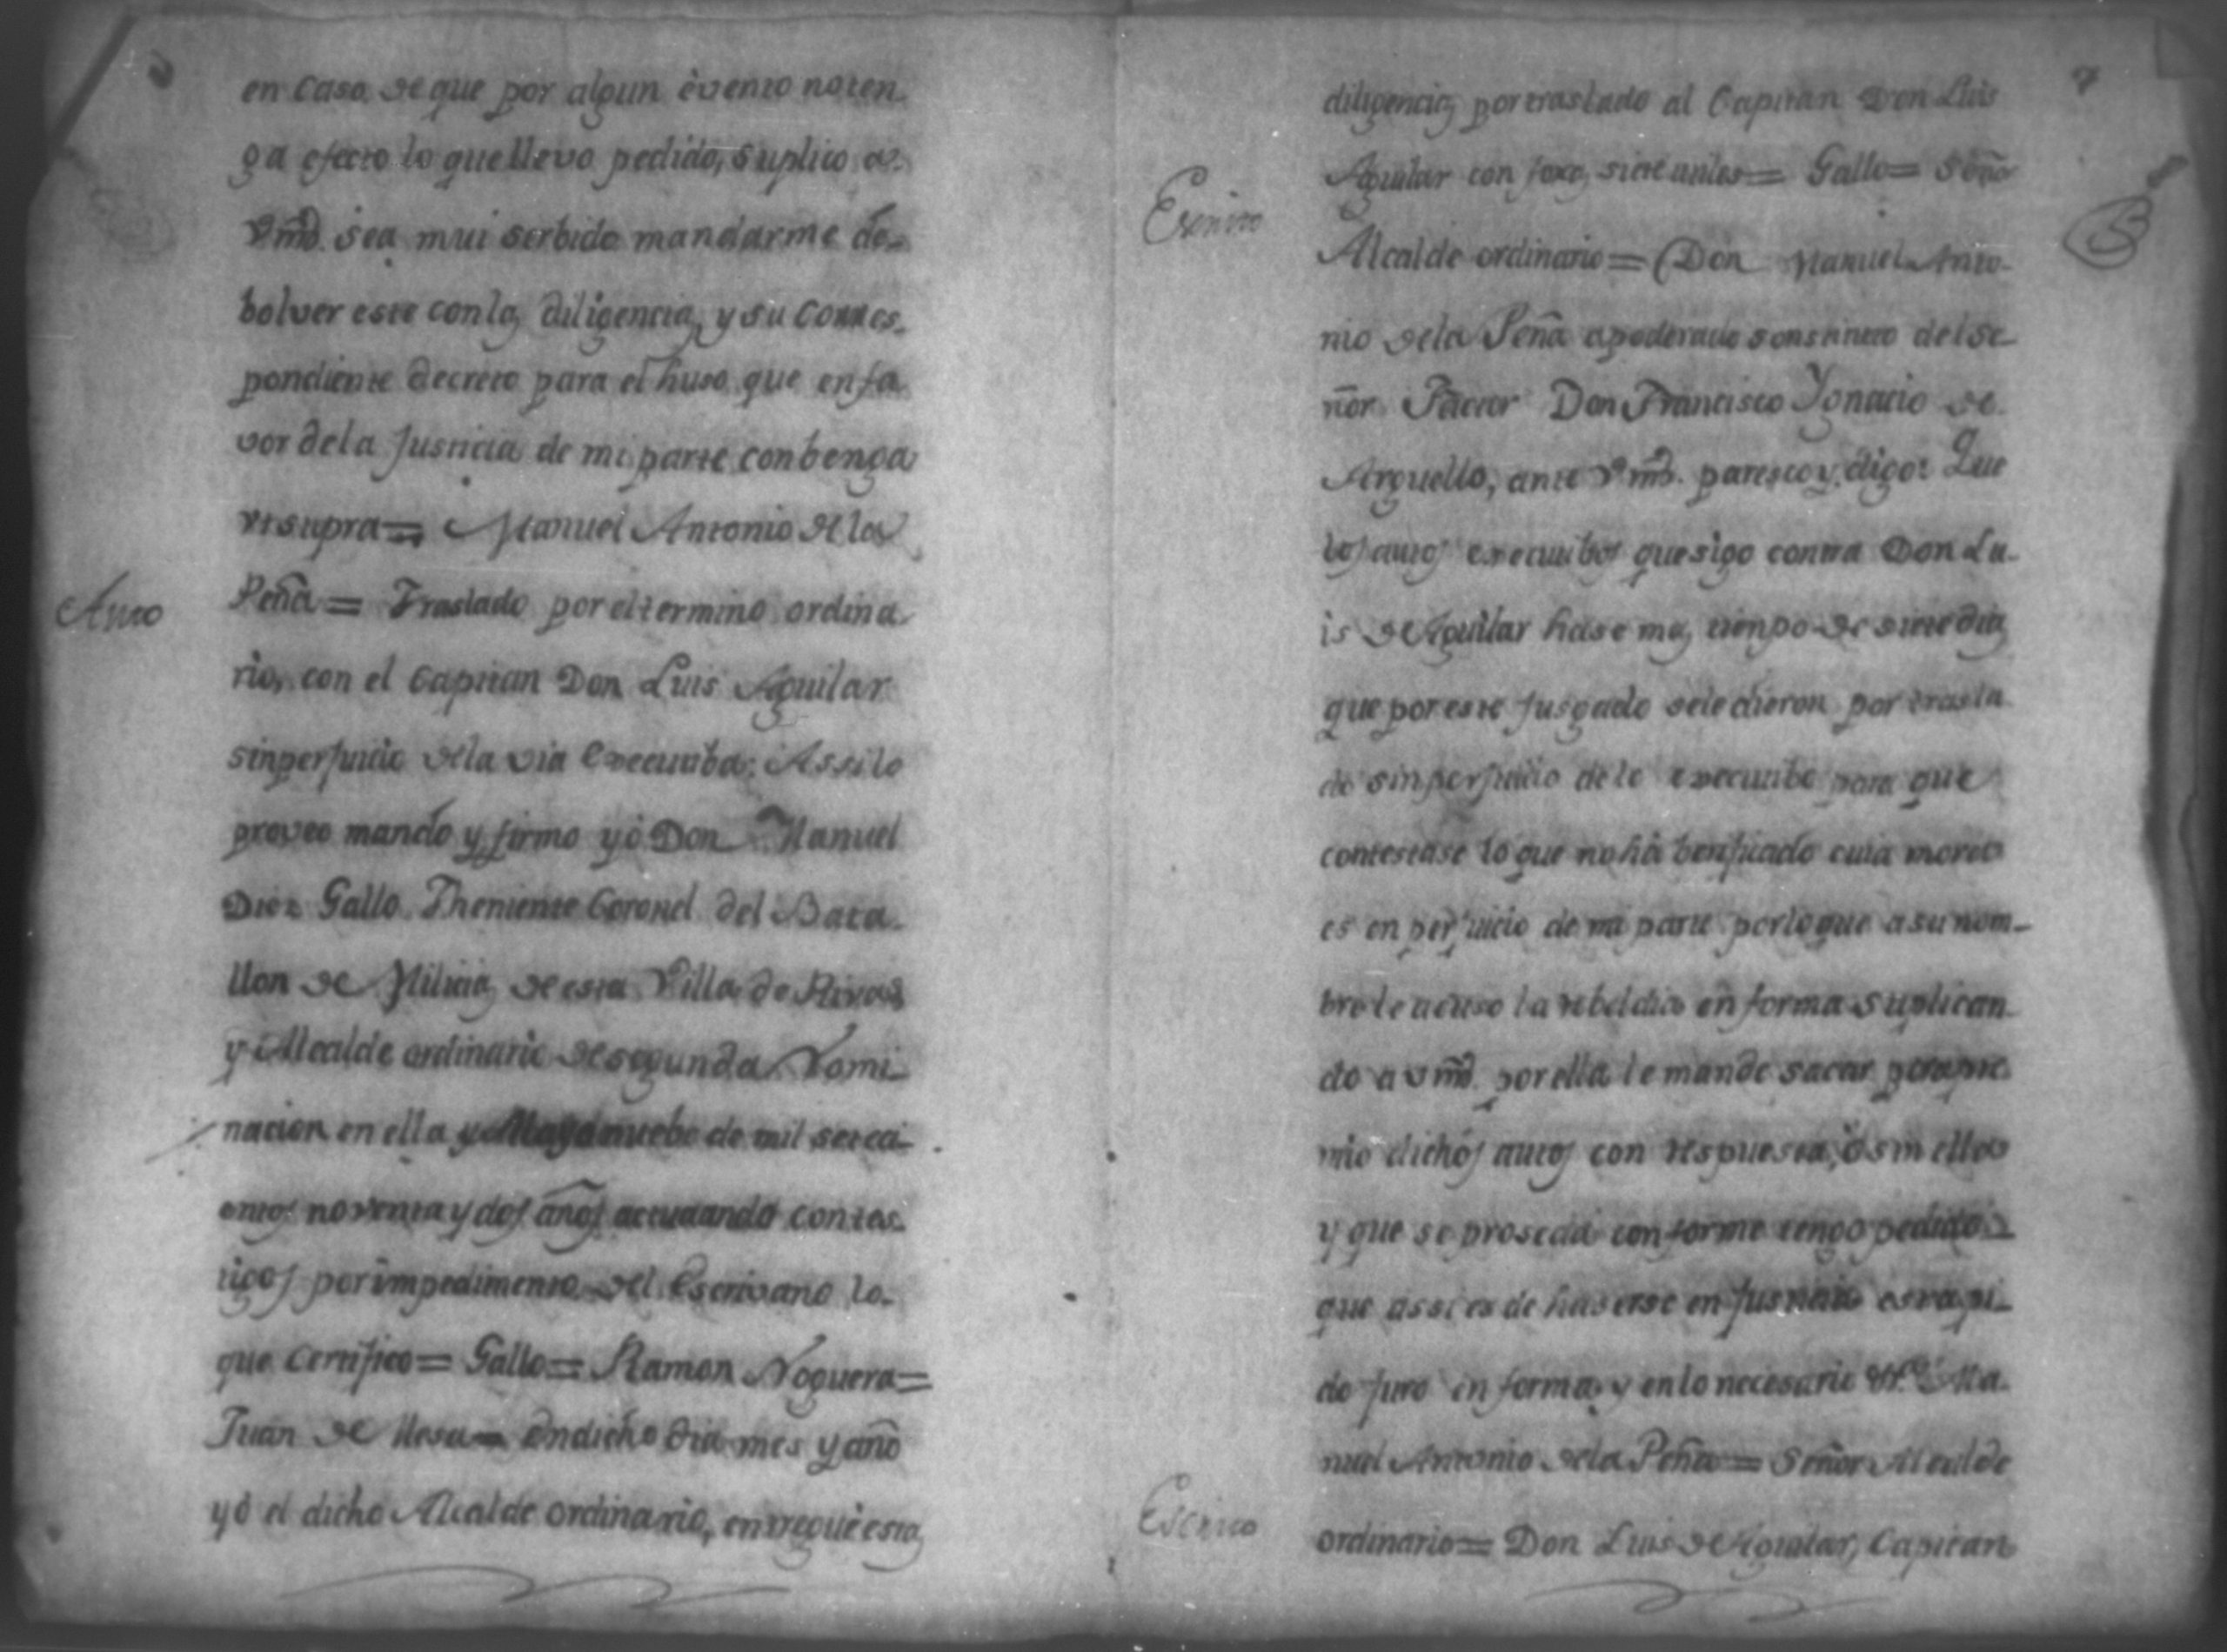 en caso de que por algun èvento noten-
ga efecto lo que llevo pedido, suplico a
Vmd. sea mui serbido mandarme de-
bolver este conlas diligencias, y su corres-
pondiente decreto para el huso que enfa
vor dela Justicia de mi parte conbenga
vt supra = Manuel Antonio de la
Auto
Peña = Traslado por el termino ordina
rio, con el Capitan Don Luis Aguilar
sinperjuicio dela via executiba: Assi lo
proveo mando y firmo yò Don Manuel
Diez Gallo Theniente Coronel del Bata-
llon de Milicias de esta Villa de Rivas
y Alcalde ordinario de segunda Nomi-
nacion en ella y Mayo nuebe de mil seteci-
entos noventa y dos años actuando con tes-
tigos por impedimento del Escrivano lo-
que certifico = Gallo = Ramon Noguera =
Juan de Mesa = Endicho dia mes y año
yò el dicho Alcalde ordinario, entreguè estas
7
diligencias por traslado al Capitan Don Luis
Aguilar con foxas siete utiles = Gallo = Señor
Escrito
Alcalde ordinario = Don Manuel Anto-
nio dela Peña apoderado sonstituto del Se-
ñor Factor Don Francisco Ygnacio de
Arguello, ante Vmd. paresco y digo: Que
los autos executibos que sigo contra Don Lu-
is de Aguilar hase mas tienpo de siete dias
que por este Jusgado sele dieron por trasla
do sinperjuicio de lo executibo para que
contestase lo que no hà berificado cuia
es en perjuicio de mi parte por lo que a su nom-
bre le acuso la rebeldia en forma suplican-
do a Vmd. por ella le mande sacar
dichos autos con respuesta, ò sin ella
y que se proseda conforme tengo pedido
que assi es de haserse en Justicia
do juro en forma, y en lo necesario Ma-
nuel Antonio dela Peña = Señor Alcalde
Escrito
ordinario = Don Luis de Aguilar, Capitan